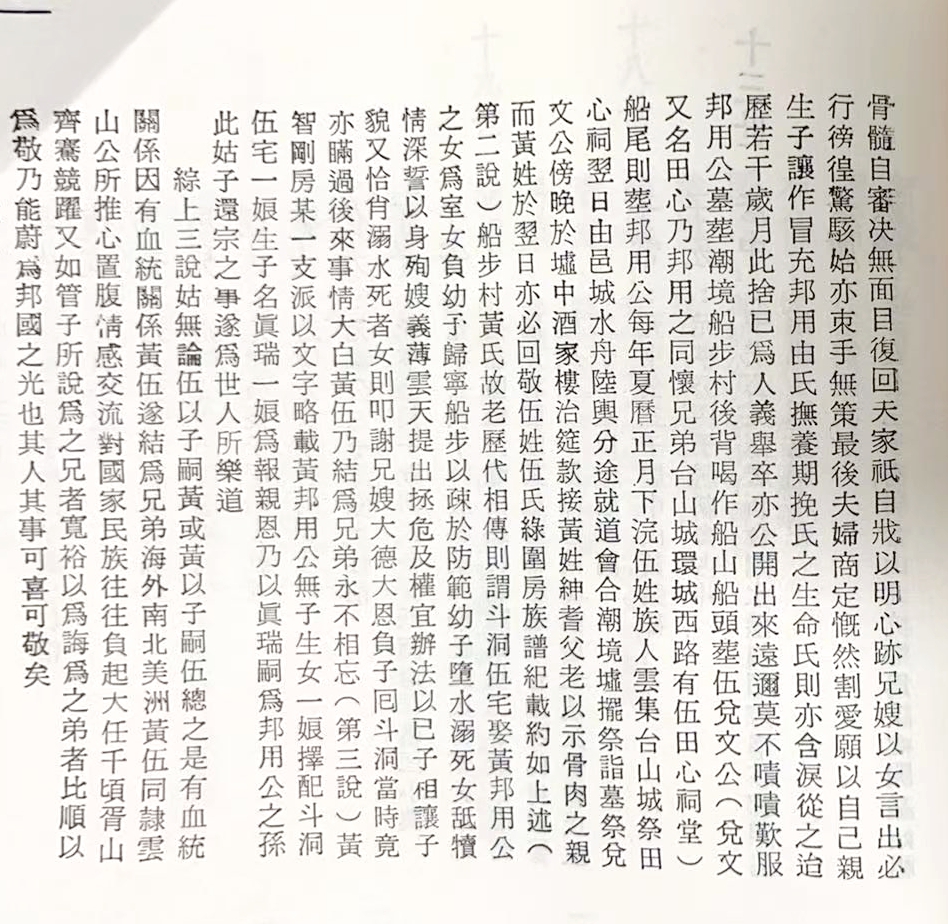 骨髓自審決無面目復回天家祇自戕以明心跡兄嫂以女言出必
行徬徨驚駭始亦束手無策最後夫婦商定慨然割愛願以自己親
生子讓作冒充邦用由氏撫養期挽氏之生命氏則亦含淚從之迨
歷若干歲月此捨已爲人義舉卒亦公開出來遠邇莫不嘖嘖歎服
邦用公墓塟潮境船步村後背喝作船山船頭塟伍兌文公(兌文
又名田心乃邦用之同懷兄弟台山城環城西路有伍田心祠堂)
船尾則塟邦用公每年夏曆正月下浣伍姓族人雲集台山城祭田
心祠翌日由邑城水舟陸輿分途就道會合潮境墟擺祭詣墓祭兌
文公傍晚於墟中酒家樓治筵款接黃姓紳耆父老以示骨肉之親
而黃姓於翌日亦必回敬伍姓伍氏綠圍房族譜紀載約如上述(
第二說)船步村黃氏故老歷代相傳則謂斗洞伍宅娶黃邦用公
之女爲室女負幼子歸寧船步以疎於防範幼子墮水溺死女舐犢
情深誓以身殉嫂義薄雲天提出拯危及權宜辦法以已子相讓子
貌又恰肖溺水死者女則叩謝兄嫂大德大恩負子囘斗洞當時竟
亦瞞過後來事情大白黃伍乃結爲兄弟永不相忘(第三說)黃
智剛房某一支派以文字略載黃邦用公無子生女一娘擇配斗洞
伍宅一娘生子名眞瑞一娘爲報親恩乃以眞瑞嗣爲邦用公之孫
此姑子還宗之事遂爲世人所樂道
綜上三說姑無論伍以子嗣黃或黃以子嗣伍總之是有血統
關係因有血統關係黃伍遂結爲兄弟海外南北美洲黃伍同隸雲
山公所推心置腹情感交流對國家民族往往負起大任千頃胥山
齊驁競躍又如管子所說爲之兄者寬裕以爲誨爲之弟者比順以
爲敬乃能蔚爲邦國之光也其人其事可喜可敬矣